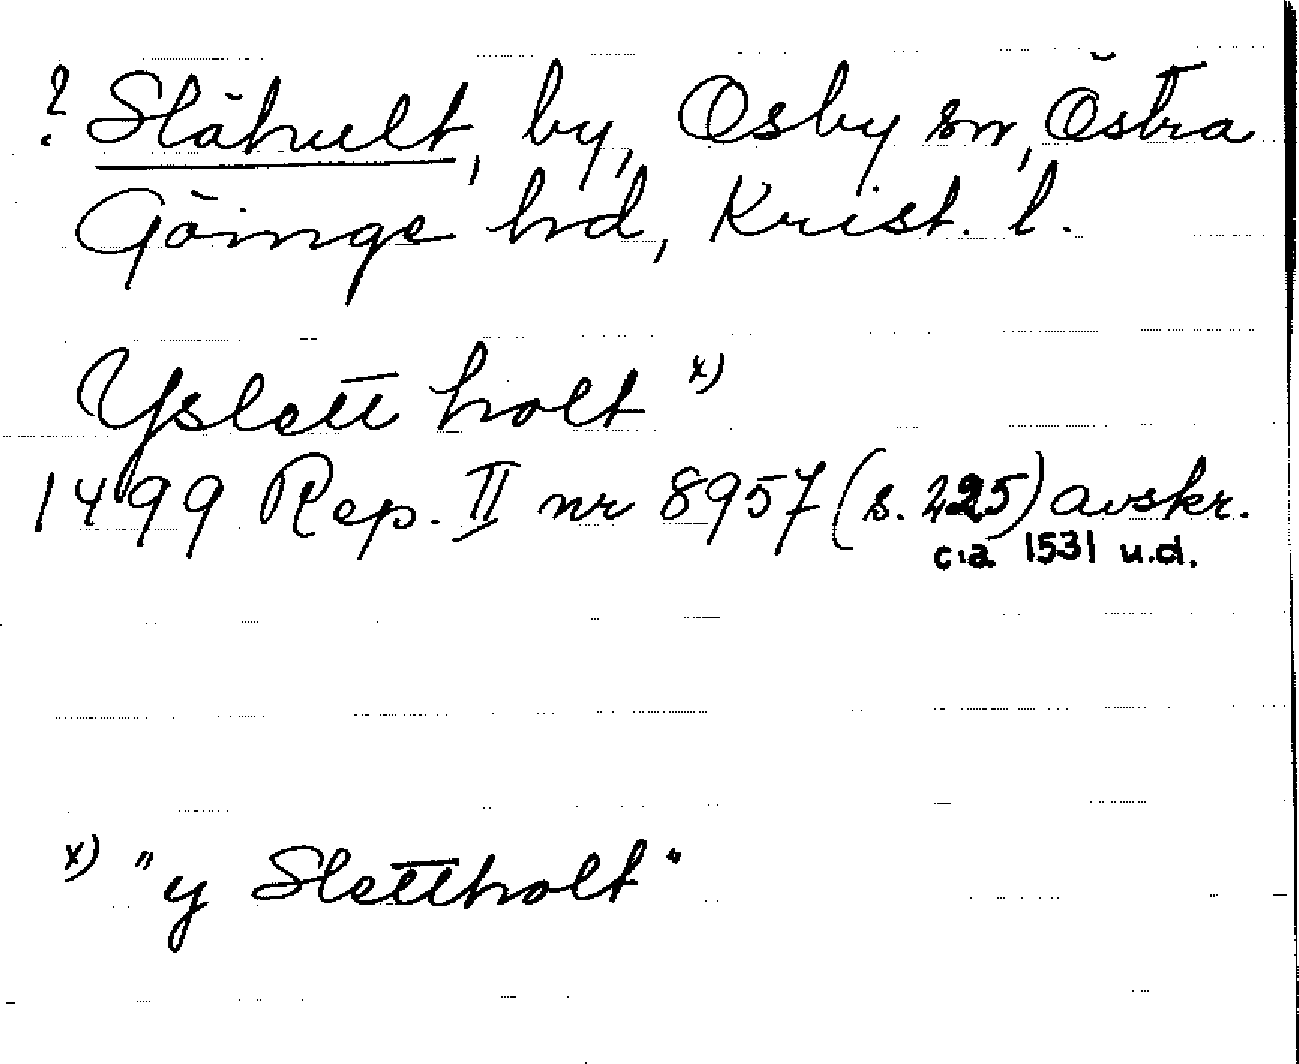 ? Slähult, by, Osby sn, Östra
Göinge hd, Krist. l.
Yslett holt x)
1499 Rep. II nr 8957 (s. 425) avskr.
c:a 1531 u.d.
x) "y Slettholt"